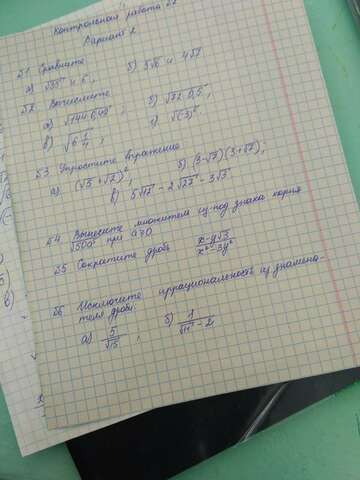 Контрольная работа №2
Вариант 2
№1 Сравните
а) √35 и 6, б) 5√6 и 4√7
№2 Вычислите
а) √144·0,49, б) √72·0,5,
в) √6 1/4, г) √(-3)⁶
№3 Упростите выражение
а) (√5 + √2)², б) (3-√7)(3+√7),
в) 5√12 - 2√27 - 3√3
№4 Вынесите множитель из-под знака корня
при а≥0
№5 Сократите дробь x-y√3 / x²-3y²
№6 Исключите иррациональность из знамена-
теля дроби:
а) 5/√15, б) 1/(√11 - 2)